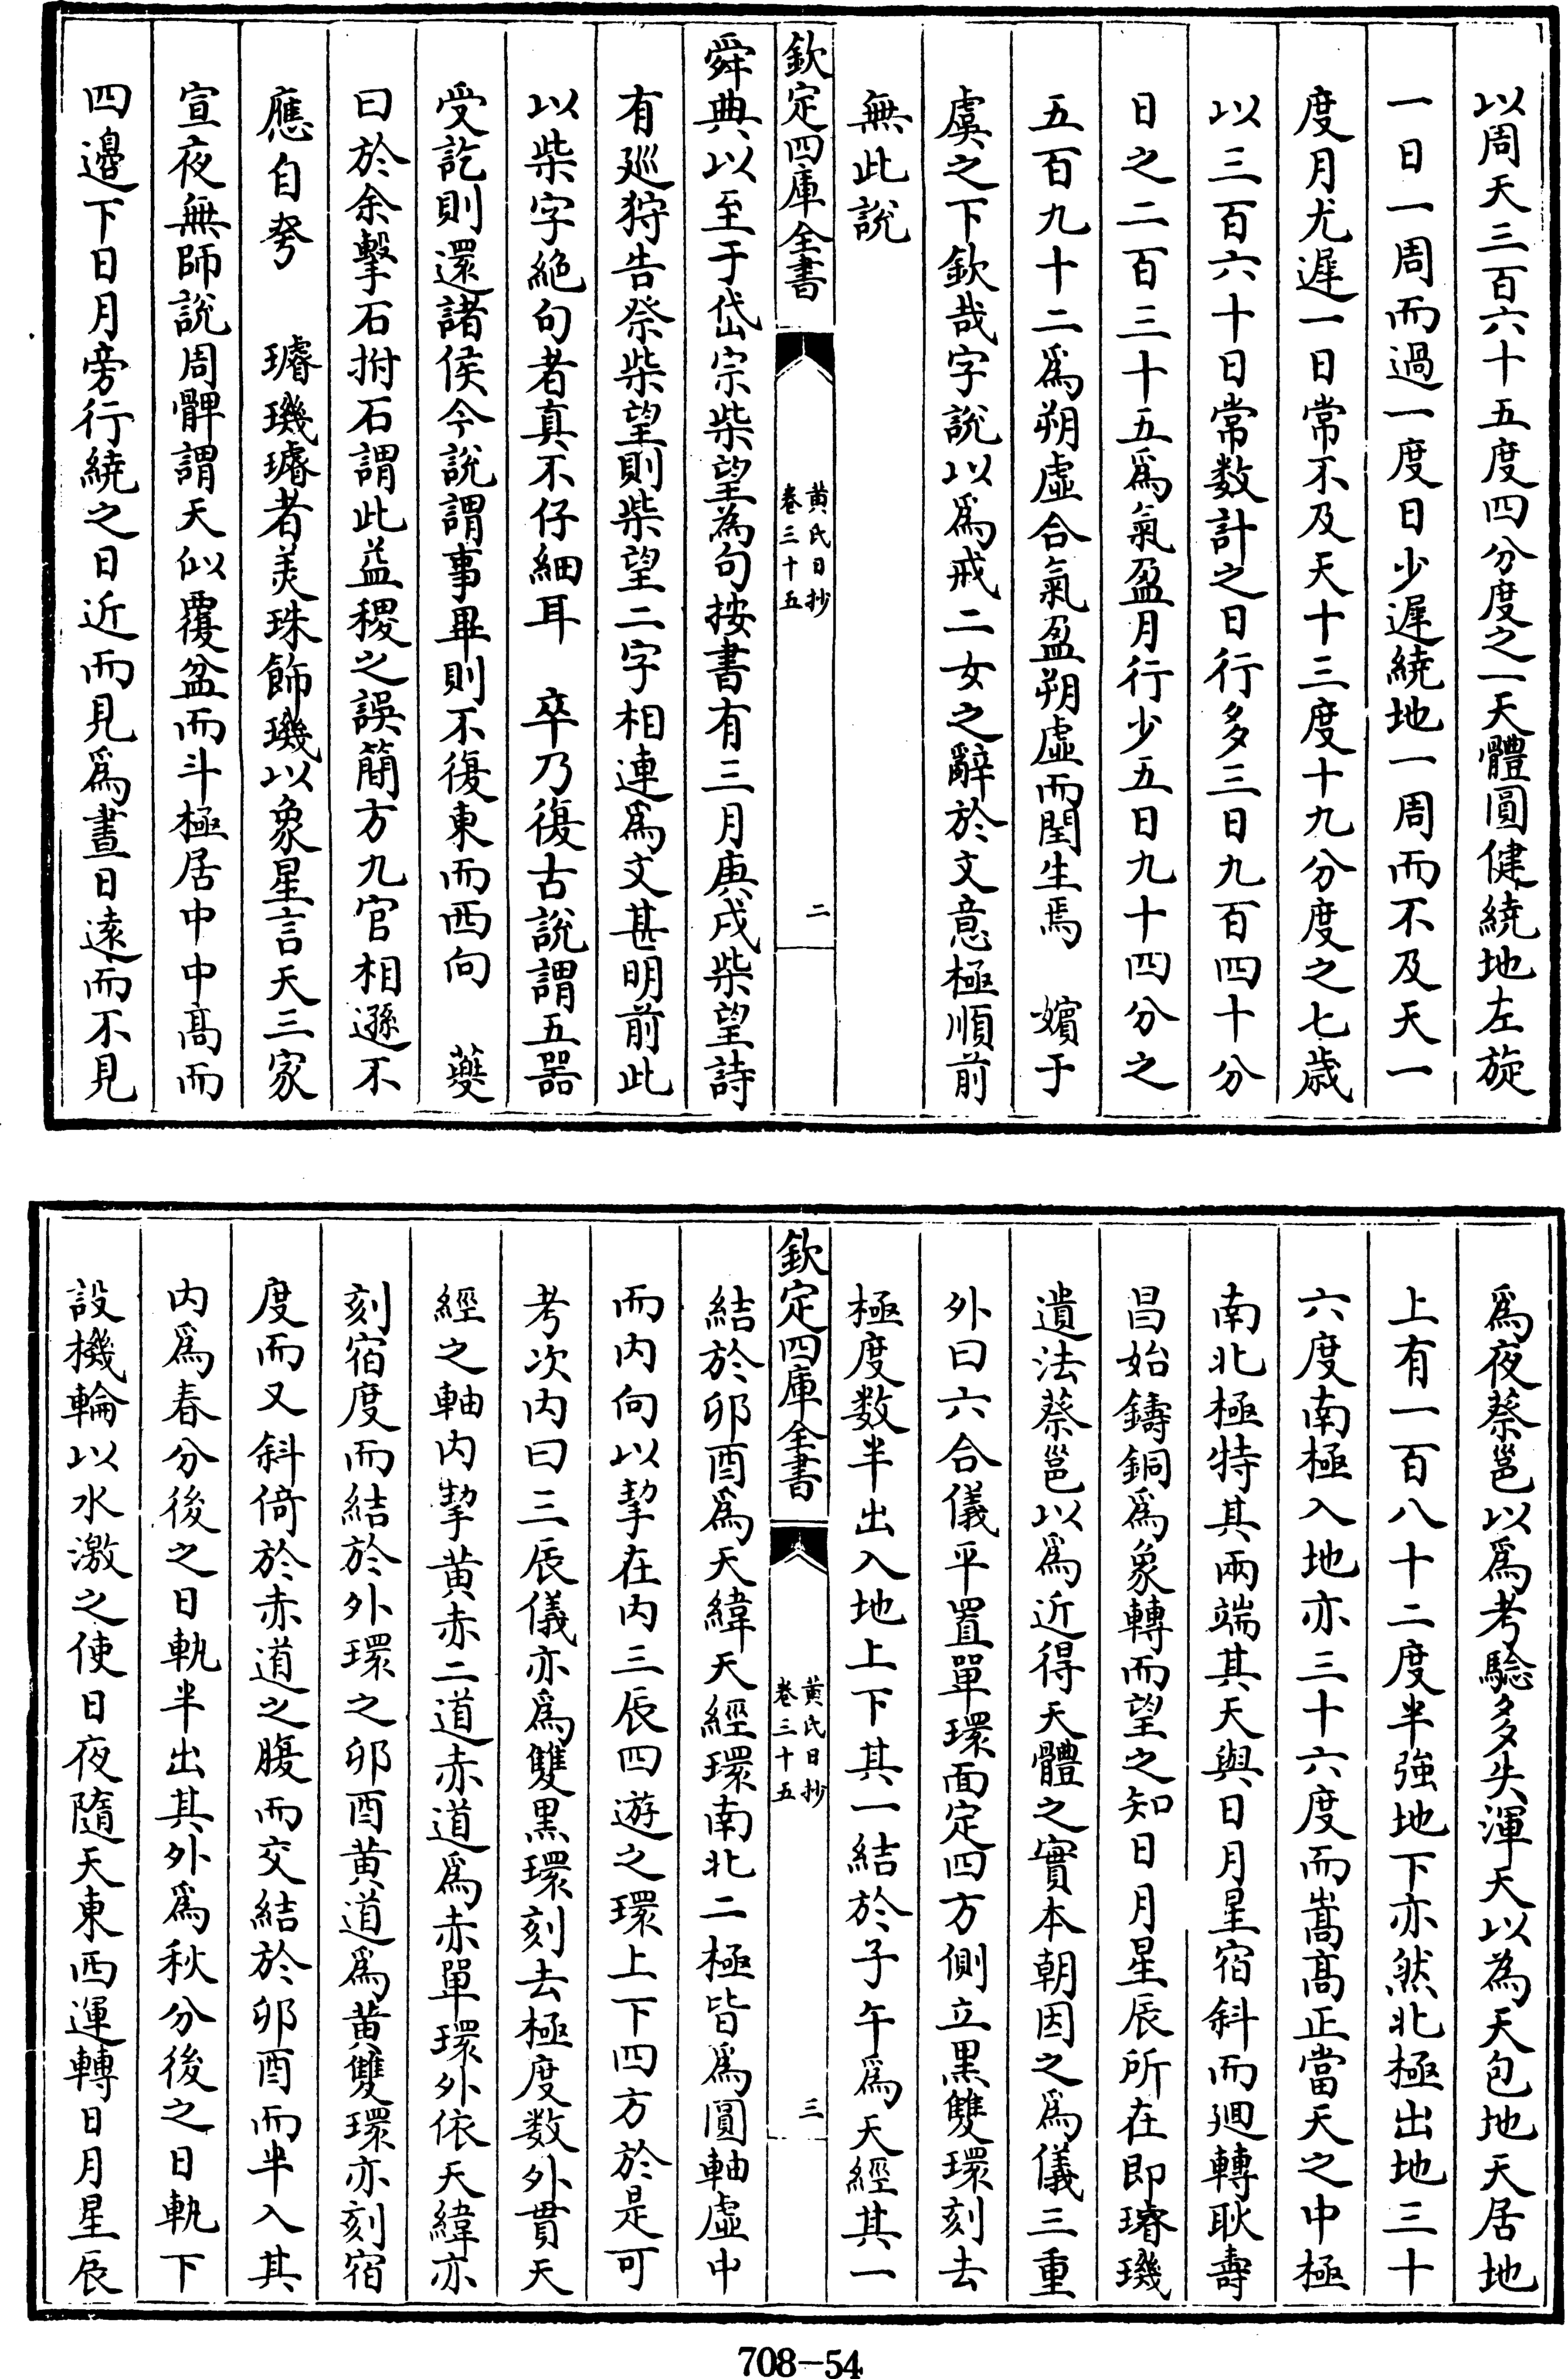 以周天三百六十五度四分度之一天體圓健繞地左旋
一日一周而過一度日少遲繞地一周而不及天一
度月尤遲一日常不及天十三度十九分度之七歲
以三百六十日常数計之日行多三日九百四十分
日之二百三十五爲氣盈月行少五日九十四分之
五百九十二爲朔虛合氣盈朔虛而閏生焉　嬪于
虞之下欽哉字說以爲戒二女之辭於文意極順前
無此說
欽定四庫全書
黄氏日抄
卷三十五
二
舜典以至于岱宗柴望為句按書有三月庚戌柴望詩
有廵狩告祭柴望則柴望二字相連爲文甚明前此
以柴字絶句者真不仔細耳　卒乃復古說謂五噐
受訖則還諸侯今說謂事畢則不復東而西向　䕫
曰於余擊石拊石謂此益稷之誤簡方九官相遜不
應自矜　璿璣璿者美珠飾璣以象星言天三家
宣夜無師說周髀謂天似覆盆而斗極居中中髙而
四邉下日月旁行繞之日近而見爲晝日逺而不見
爲夜蔡邕以爲考驗多失渾天以為天包地天居地
上有一百八十二度半強地下亦然北極出地三十
六度南極入地亦三十六度而嵩髙正當天之中極
南北極特其兩端其天與日月星宿斜而廻轉耿壽
昌始鑄銅爲象轉而望之知日月星辰所在即璿璣
遺法蔡邕以爲近得天體之實本朝因之爲儀三重
外曰六合儀平置單環面定四方側立黒雙環刻去
極度数半出入地上下其一結於子午爲天經其一
欽定四庫全書
黄氏日抄
卷三十五
三
結於卯酉爲天緯天經環南北二極皆爲圓軸虛中
而内向以挈在内三辰四遊之環上下四方於是可
考次内曰三辰儀亦爲雙黒環刻去極度数外貫天
經之軸内挈黄赤二道赤道爲赤單環外依天緯亦
刻宿度而結於外環之卯酉黄道爲黄雙環亦刻宿
度而又斜倚於赤道之腹而交結於卯酉而半入其
内爲春分後之日軌半出其外爲秋分後之日軌下
設機輪以水激之使日夜隨天東西運轉日月星辰
708-54